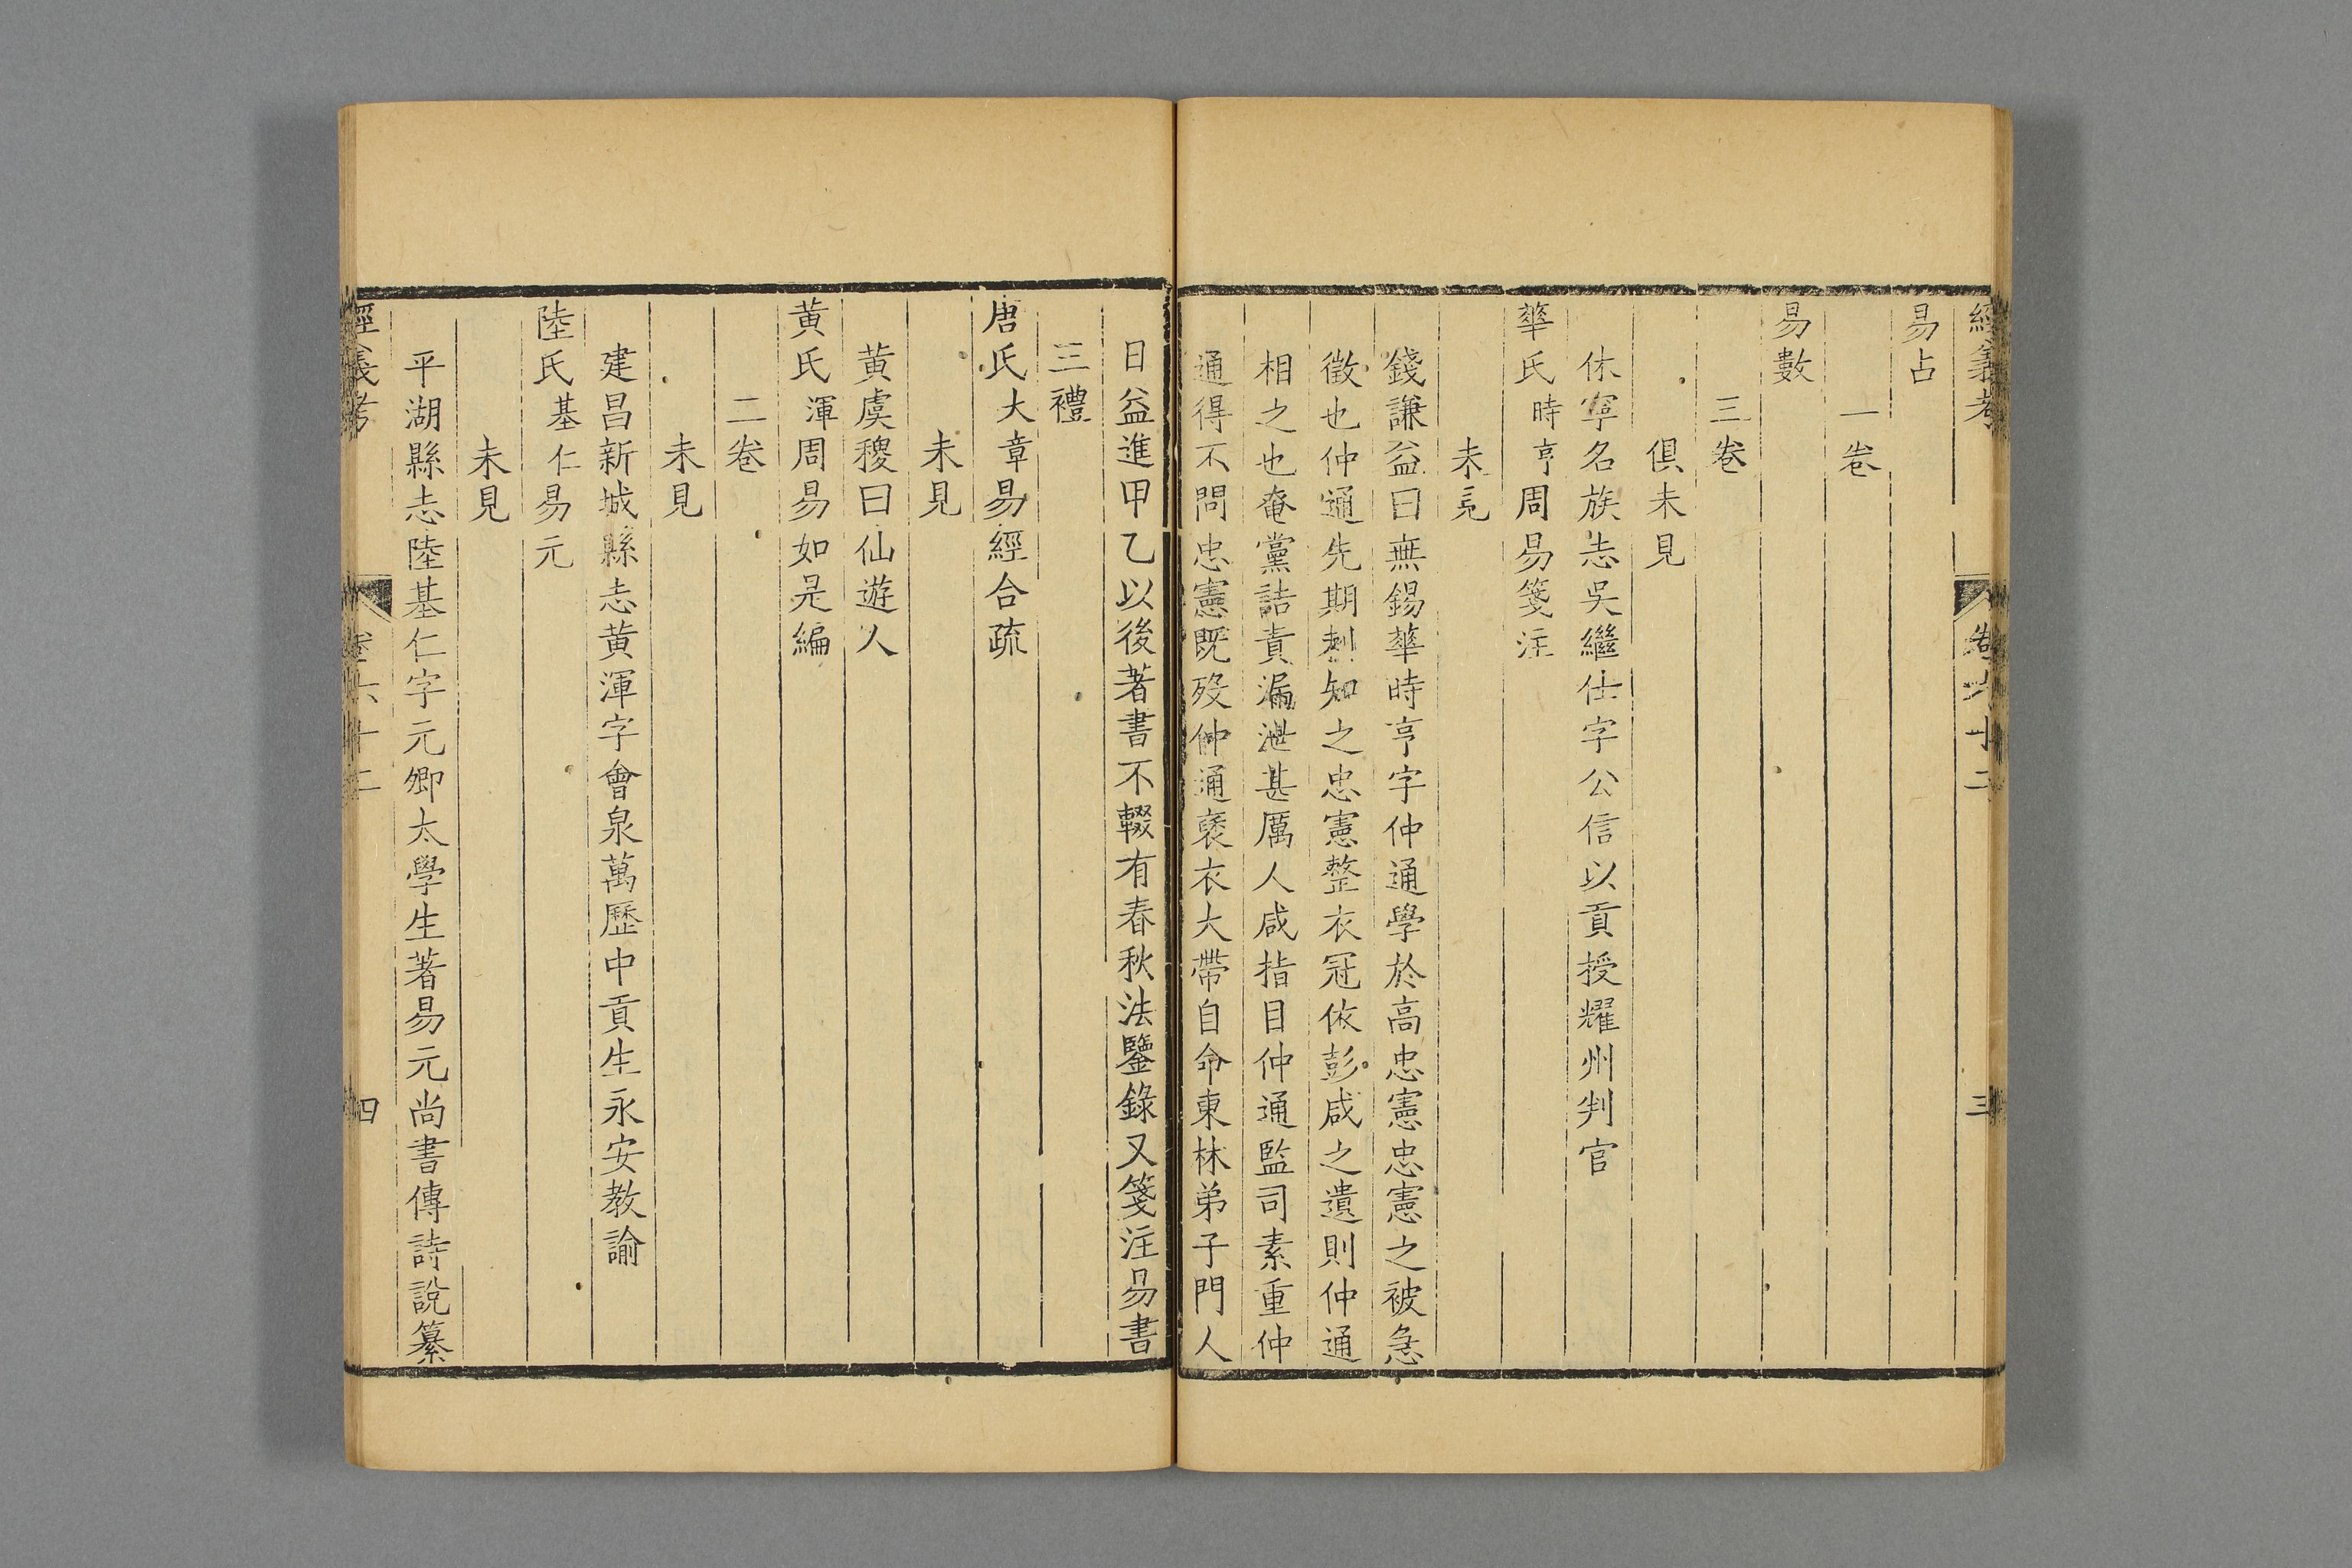 經義考 卷六十二 三
易占
一卷
易數
三卷
俱未見
休寧名族志吳繼仕字公信以貢授耀州判官
華氏時亨周易箋注
未見
錢謙益曰無錫華時亨字仲通學於高忠憲忠憲之被急
徵也仲通先期刺知之忠憲整衣冠依彭咸之遺則仲通
相之也奄黨詰責漏泄甚厲人咸指目仲通監司素重仲
通得不問忠憲既歿仲通褒衣大帶自命東林弟子門人
日益進甲乙以後著書不輟有春秋法鑒錄又箋注易書
三禮
唐氏大章易經合疏
未見
黃虞稷曰仙遊人
黃氏渾周易如是編
二卷
未見
建昌新城縣志黃渾字會泉萬歷中貢生永安教諭
陸氏基仁易元
未見
平湖縣志陸基仁字元卿太學生著易元尚書傳詩說纂
經義考 卷六十二 四